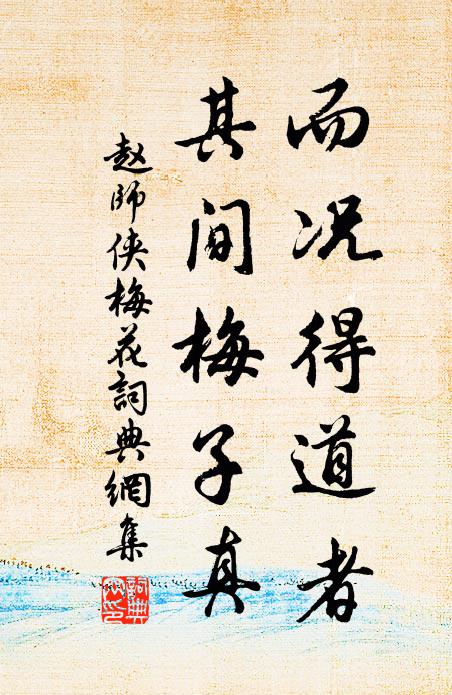 而况得道者
其间梅子真
赵師侠梅花詞典網集